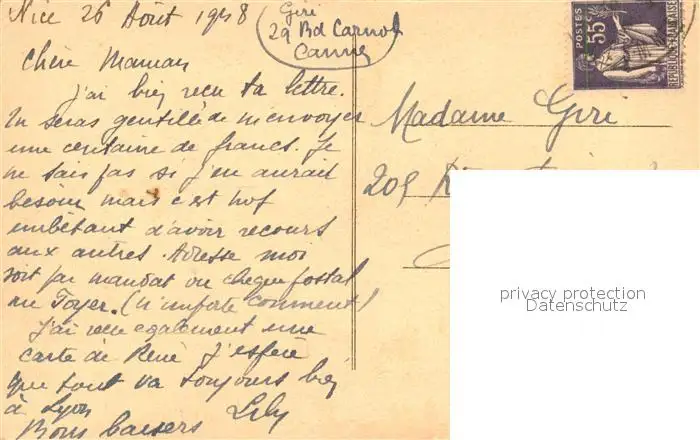 Nice 26 Août 1938
Giré
29 Bd Carnot
Cannes
POSTES
55c
REPUBLIQUE FRANÇAISE
Chère Maman
J'ai bien recu ta lettre.
Tu seras gentille de m'envoyer
une centaine de francs. Je
ne sais pas si j'en aurait
besoin mais c'est trop
embêtant d'avoir recours
aux autres. Adresse moi
soit par mandat ou cheque postal
au Foyer. (n'importe comment)
J'ai recu egalement une
carte de René J'espère
que tout va toujours bien
à Lyon
Bons baisers Lily
Madame Giré
209
privacy protection
Datenschutz